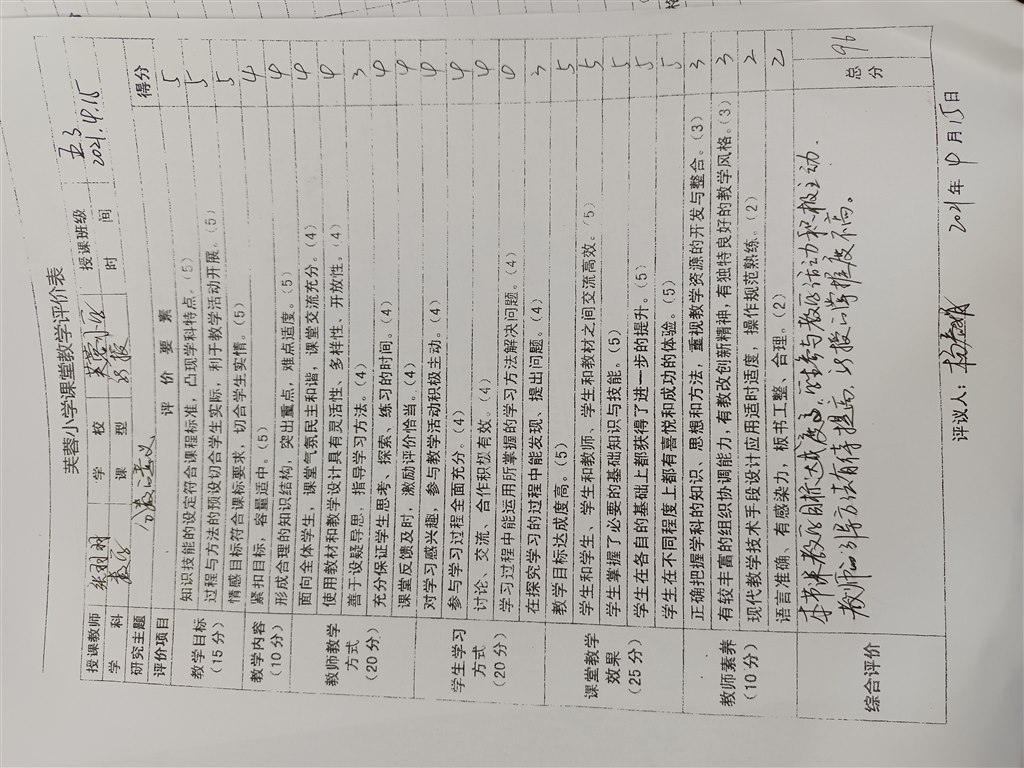 芙蓉小学课堂教学评价表
授课教师 张羽羽 学校 芙蓉小学 授课班级 五3
学科 数学 课型 新授 时间 2021.4.15
研究主题 分数的意义
评价项目 评价要素 得分
教学目标(15分) 知识技能的设定符合课程标准，凸现学科特点。(5) 5
过程与方法的预设切合学生实际，利于教学活动开展。(5) 5
情感目标符合课标要求，切合学生实情。(5) 5
教学内容(10分) 紧扣目标，容量适中。(5) 4
形成合理的知识结构，突出重点，难点适度。(5) 4
教师教学方式(20分) 面向全体学生，课堂气氛民主和谐，课堂交流充分。(4) 4
使用教材和教学设计具有灵活性、多样性、开放性。(4) 4
善于设疑导思，指导学习方法。(4) 3
充分保证学生思考、探索、练习的时间。(4) 4
课堂反馈及时，激励评价恰当。(4) 4
学生学习方式(20分) 对学习感兴趣，参与教学活动积极主动。(4) 4
参与学习过程全面充分。(4) 4
讨论、交流、合作积极有效。(4) 4
学习过程中能运用所掌握的学习方法解决问题。(4) 4
在探究学习的过程中能发现、提出问题。(4) 3
课堂教学效果(25分) 教学目标达成度高。(5) 5
学生和学生、学生和教师、学生和教材之间交流高效。(5) 5
学生掌握了必要的基础知识与技能。(5) 5
学生在各自的基础上都获得了进一步的提升。(5) 5
学生在不同程度上都有喜悦和成功的体验。(5) 5
教师素养(10分) 正确把握学科的知识、思想和方法，重视教学资源的开发与整合。(3) 3
有较丰富的组织协调能力，有教改创新精神，有独特良好的教学风格。(3) 3
现代教学技术手段设计应用适时适度，操作规范熟练。(2) 2
语言准确、有感染力，板书工整 合理。(2) 2
综合评价 本节课教学目标达成度高，学生参与教学活动积极主动.
教师的引导方法有待提高，新授的掌握度不高。
总分 96
评议人： 2021年4月15日